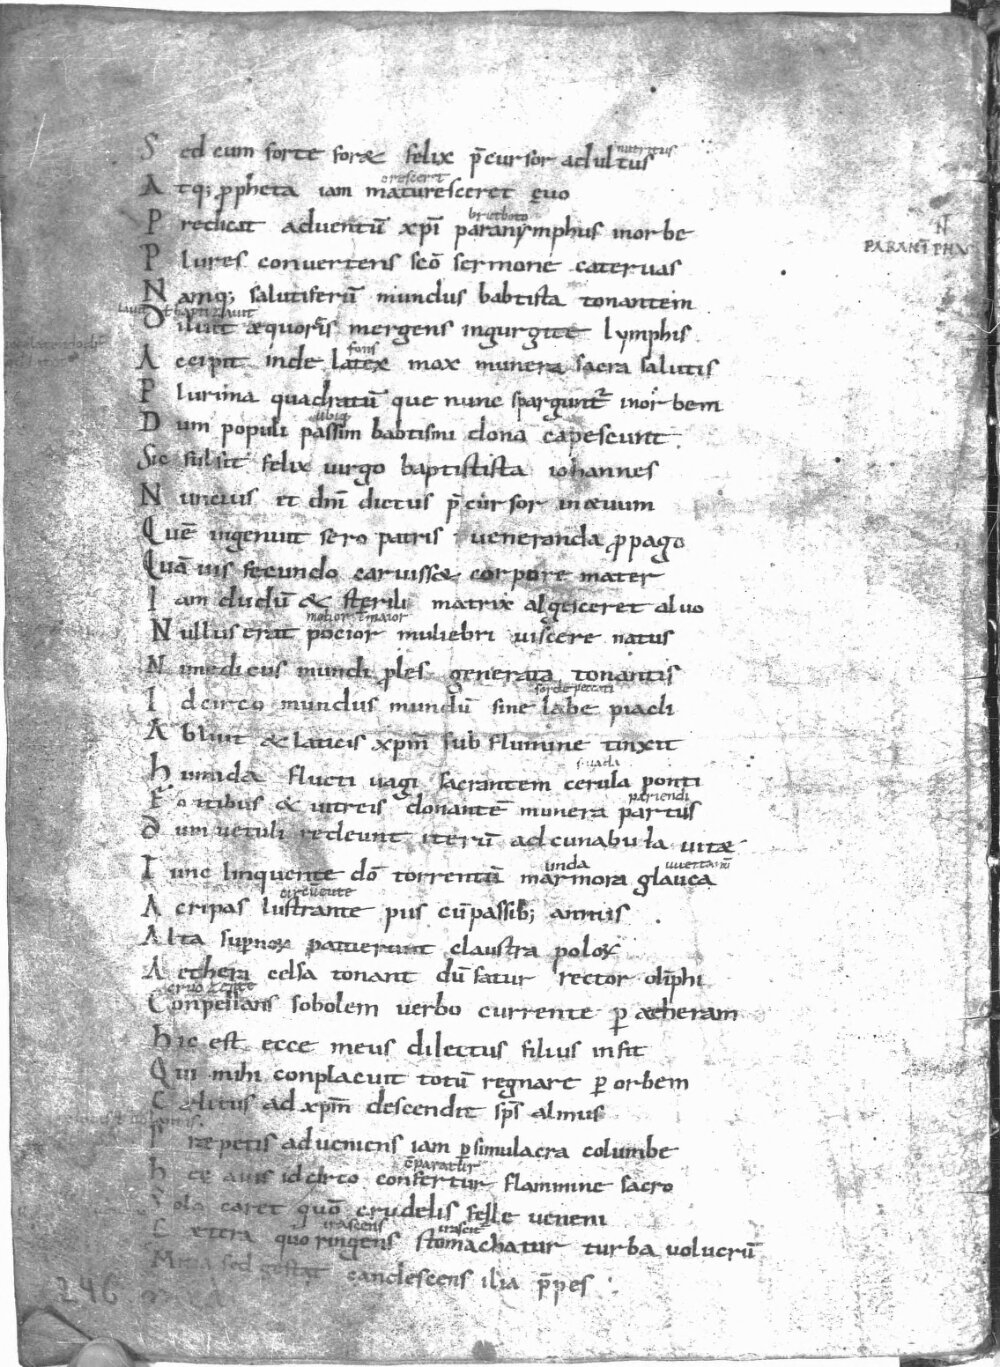 nutritus
Sed cum forte foret felix p̄cursor adultus
cresceret
Atq; ꝓpheta iam maturesceret ęuo
N
Predicat aduentū xp̄i paranymphus in orbe
PARANĪPHUS
Plures conuertens sc̄o sermone cateruas
Namq; salutiferū mundus babtista tonantem
Diluit æquoreis mergens in gurgite lymphis
fons
Accipit inde latex max munera sacra salutis
Plurima quadratū que nunc spargunt᷑ in orbem
ubiq;
Dum populi passim babtismi dona capescunt
Sic fulsit felix uirgo baptistista iohannes
Nuncius et dn̄i dictus p̄cursor in æuum
Quē ingenuit sero patris ueneranda ꝓpago
Quāuis fecundo caruisset corpore mater
Iam dudū & sterili matrix algesceret aluo
melior ł maior
Nullus erat pocior muliebri uiscere natus
Ni medicus mundi ꝓles generata tonantis
sorde peccati
Idcirco mundus mundū sine labe piacli
Abluit & laticis xp̄m sub flumine tinxit
Humida flucti uagi sacrantem cerula ponti
pariendi
Fontibus & uitreis donantē munera partus
Dum uetuli redeunt iterū ad cunabula uitæ
unda
Tunc linquente dō torrentū marmora glauca
circūeunte
Ac ripas lustrante pius cū passib; amnis
Alta supernoꝝ patuerunt claustra poloꝝ
Aethera celsa tonant dū fatur rector olimphi
Conpellans sobolem uerbo currente ꝑ aetheram
Hic est ecce meus dilectus filius infit
Qui mihi conplacuit totū regnare ꝑ orbem
Cælitus ad xp̄m descendit sp̄s almus
Præpetis adueniens iam ꝑ simulacra columbe
c̄paratur
Hęc auis idcirco confertur flammine sacro
Sola caret quō crudelis felle ueneni
irascens irascit᷑
Extera quo ringens stomachatur turba uolucrū
sed gestat candescens ilia p̄pes
246